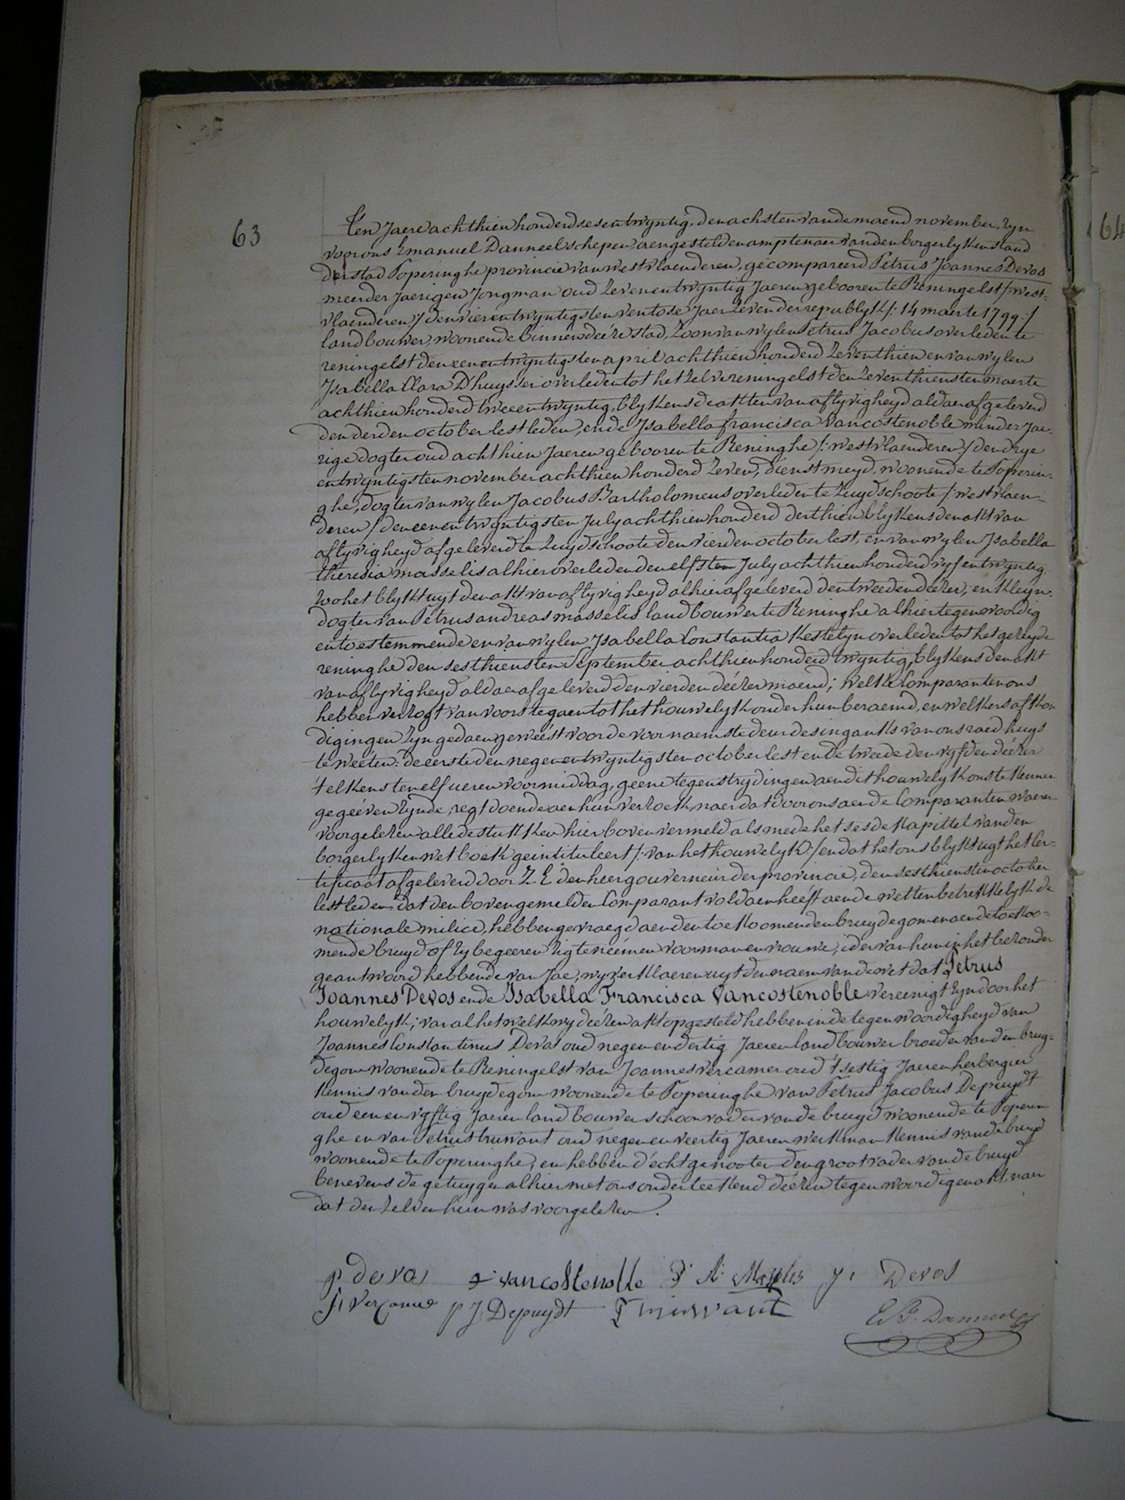 63
Ten Jaere achthien honderd sesentwyntig, den achsten van de maend november, zyn
voor ons Emanuel Danneel schepen aengestelden amptenaer van den borgerlyken stand
der stad Poperinghe provincie van westvlaenderen, gecompareerd Petrus Joannes Devos
meerder jaerigen jongman oud zevenentwyntig Jaeren gebooren te Reningelst /: west-
vlaenderen :/ den vierentwyntigsten ventose Jaer zeven der republyk /: 14 maerte 1799 :/
landbouwer, woonende binnen deéze stad, zoon van wylen Petrus Jacobus overleden te
reningelst den eenentwyntigsten april achthien honderd zeventhien en van wylen
Isabella Clara D'huysser overleden tot het zelve reningelst den zeventhiensten maerte
achthien honderd tweeentwyntig, blykens de akten van aflyvigheyd aldaer afgeleverd
den derden october lestleden, ende Isabella francisca Vancostenoble minder jae-
rige dogter oud achthien Jaeren gebooren te Reninghe /: westvlaenderen :/ den drye
entwyntigsten november achthien honderd zeven, dienstmeyd, woonende te Poperin-
ghe, dogter van wylen Jacobus Bartholomeus overleden te Zuydschoote /: westvlaen-
deren :/ den eenentwyntigsten July achthien honderd derthien blykens den akt van
aflyvigheyd afgeleverd te Zuydschoote den vierden october lest, en van wylen Isabella
theresia masselis alhier overleden den elfsten July achthien honderd vyfentwyntig
zoo het blykt uyt den akt van aflyvigheyd alhier afgeleverd den tweeden deézer, en kleyn-
dogter van Petrus andreas masselis landbouwer te Reninghe alhier tegenwoordig
en toestemmende en van wylen Isabella Constantia Kestelyn overleden tot het gezeyde
reninghe den sesthiensten September achthien honderd twyntig, blykens den akt
van aflyvigheyd aldaer afgeleverd den vierden deézer maend; welke Comparanten ons
hebben verzogt van voorstegaen tot het houwelyk onder hun beraemd, en welkers afkon
digingen zyn gedaen geweést voor de voornaemste deur des ingank's van ons raed huys
te weeten: de eerste den negenentwyntigsten october lest en de tweede den vyfden deézer
t'elkens ten elf ueren voormiddag, geene tegenstrydingen aen dit houwelyk ons te kennen
gegeéven zynde, regt doende aen hun verzoek, naer dat door ons aen de Comparanten waeren
voorgelezen alle de stukken hier boven vermeld als mede het sesde kapittel van den
borgerlyken wetboek geintituleert /: van het houwelyk :/ en dat het ons blykt uyt het Cer-
tificaat afgeleverd door Z. E. den heer gouverneur der provincie, den sesthiensten october
lestleden, dat den bovengemelden Comparant voldaen heéft aen de wetten betrekkelyk de
nationale milice, hebben gevraegd aen den toekoomenden bruydegom en aen de toekoo-
mende bruyd of zy begeeren zig te neémen voor man en vrouwe, ider van hun in het bezonder
geantwoord hebbende van Jae, wy verklaeren uyt den naem van de wet dat Petrus
Joannes Devos ende Isabella Francisca Vancostenoble vereenigt zyn door het
houwelyk; van al het welk wy deézen akt opgesteld hebben in de tegenwoordigheyd van
Joannes Constantinus Devos oud negenendertig Jaeren landbouwer broeder van den bruy-
degom woonende te Reningelst van Joannes Vercamer oud t'sestig Jaeren herbergier
kennis van den bruydegom woonende te Poperinghe van Petrus Jacobus Depuydt
oud eenenvyftig Jaeren landbouwer schoonvader van de bruyd woonende te Poperin
ghe en van Petrus truwant oud negenenveertig Jaeren werkman kennis van de bruyd
woonende te Poperinghe; en hebben d'echtgenooten den grootvader van de bruyd
benevens de getuygen alhier met ons onderteekend deézen tegenwoordigen akt, naer
dat den zelven hun was voorgelezen.
p devos vancostenoble P. A. Masselis J. Devos
J. Vercamer p J. Depuydt P truwant E. F. Danneel
64